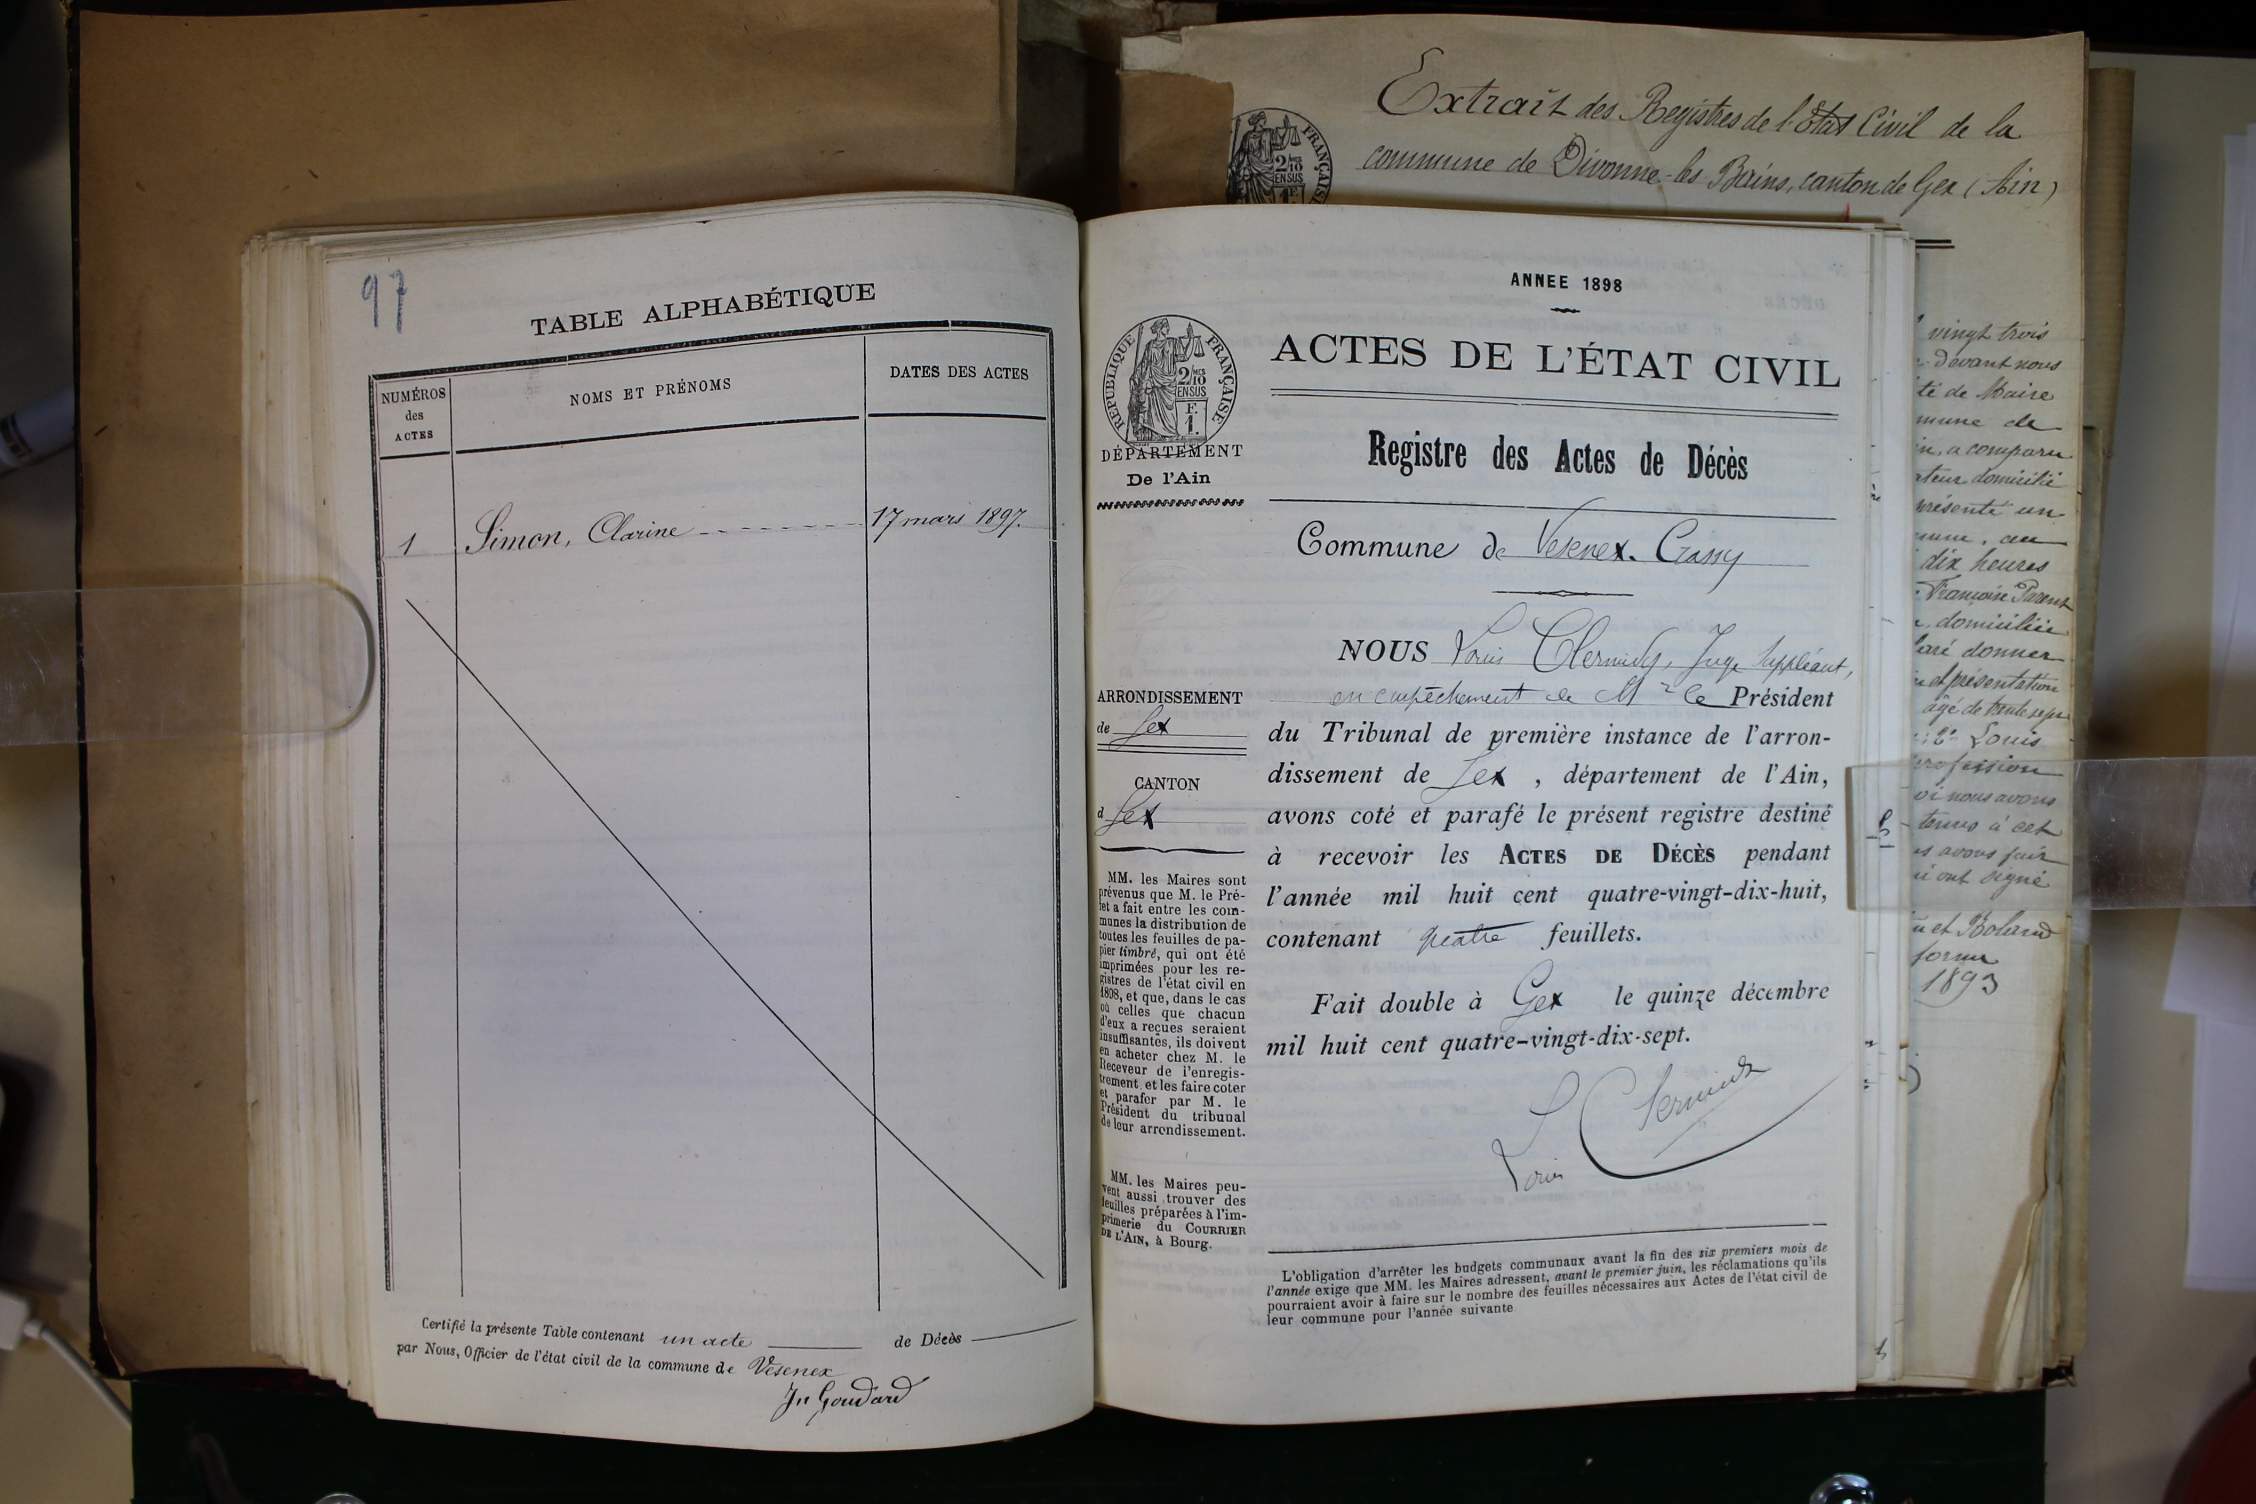 97
TABLE ALPHABÉTIQUE
NUMÉROS
des
ACTES
NOMS ET PRÉNOMS
DATES DES ACTES
1 Simon, Clarine 17 mars 1897.
Certifié la présente Table contenant un acte de Décès
par Nous, Officier de l'état civil de la commune de Vesenex
Jn Goudard
Extrait des Registres de l'État Civil de la
commune de Divonne-les Bains, canton de Gex (Ain)
ANNEE 1898
ACTES DE L'ÉTAT CIVIL
RÉPUBLIQUE FRANÇAISE
2/10
EN SUS
F.
1.
DÉPARTEMENT
De l'Ain
Registre des Actes de Décès
Commune de Vesenex-Crassy
NOUS Louis Juge Suppléant,
en empêchement de Mr le Président
du Tribunal de première instance de l'arron-
dissement de Gex, département de l'Ain,
avons coté et parafé le présent registre destiné
à recevoir les ACTES DE DÉCÈS pendant
l'année mil huit cent quatre-vingt-dix-huit,
contenant quatre feuillets.
Fait double à Gex le quinze décembre
mil huit cent quatre-vingt-dix-sept.
Louis
ARRONDISSEMENT
de Gex
CANTON
d Gex
MM. les Maires sont
prévenus que M. le Pré-
fet a fait entre les com-
munes la distribution de
toutes les feuilles de pa-
pier timbré, qui ont été
imprimées pour les re-
gistres de l'état civil en
1898, et que, dans le cas
où celles que chacun
d'eux a reçues seraient
insuffisantes, ils doivent
en acheter chez M. le
Receveur de l'enregis-
trement et les faire coter
et parafer par M. le
Président du tribunal
de leur arrondissement.
MM. les Maires peu-
vent aussi trouver des
feuilles préparées à l'im-
primerie du COURRIER
DE L'AIN, à Bourg.
L'obligation d'arrêter les budgets communaux avant la fin des six premiers mois de
l'année exige que MM. les Maires adressent, avant le premier juin, les réclamations qu'ils
pourraient avoir à faire sur le nombre des feuilles nécessaires aux Actes de l'état civil de
leur commune pour l'année suivante
vingt trois
devant nous
té de Maire
mune de
in, a comparu
ateur domicilié
présenté un
dix heures
Françoise Parent
domiciliée
laré donner
et présentation
âgé de trente sept
Louis
profession
oi nous avons
tenus à cet
es avons fait
ont signé
et Roland
1893